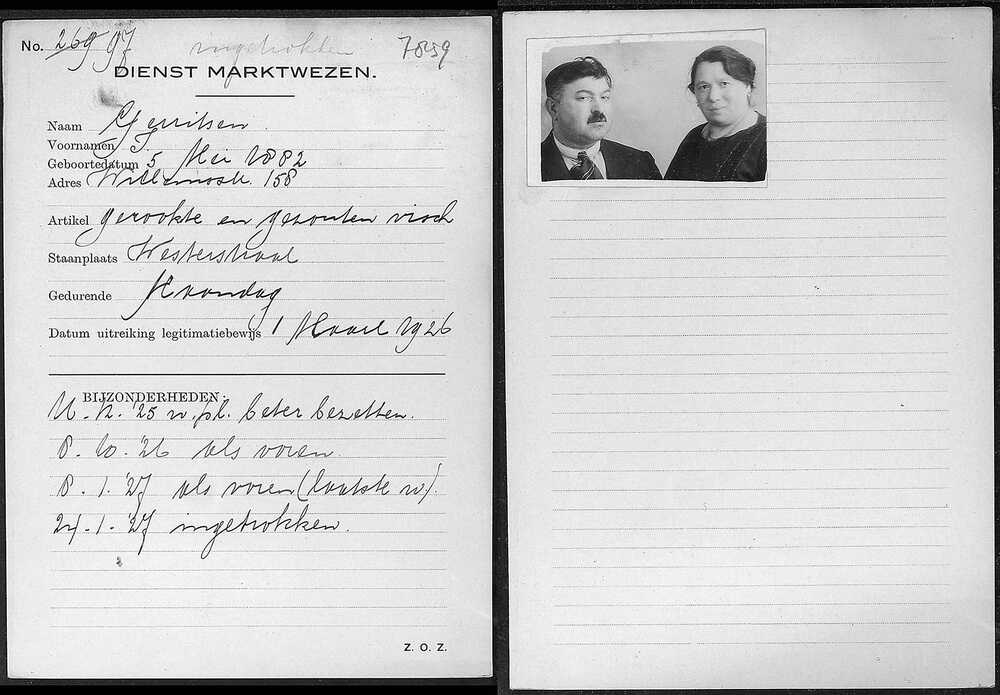 No. 269 97 ingetrokken 7859
DIENST MARKTWEZEN.
Naam Gerritsen.
Voornamen J.
Geboortedatum 5 Mei 1882
Adres Willemsstr. 158
Artikel gerookte en gezouten visch
Staanplaats Westerstraat
Gedurende Maandag
Datum uitreiking legitimatiebewijs 1 Maart 1926
BIJZONDERHEDEN:
'25 w. pl. beter bezetten.
8. 10. '26 als voren.
8. 1. '27 als voren (laatste w).
24. 1. '27 ingetrokken.
Z. O. Z.